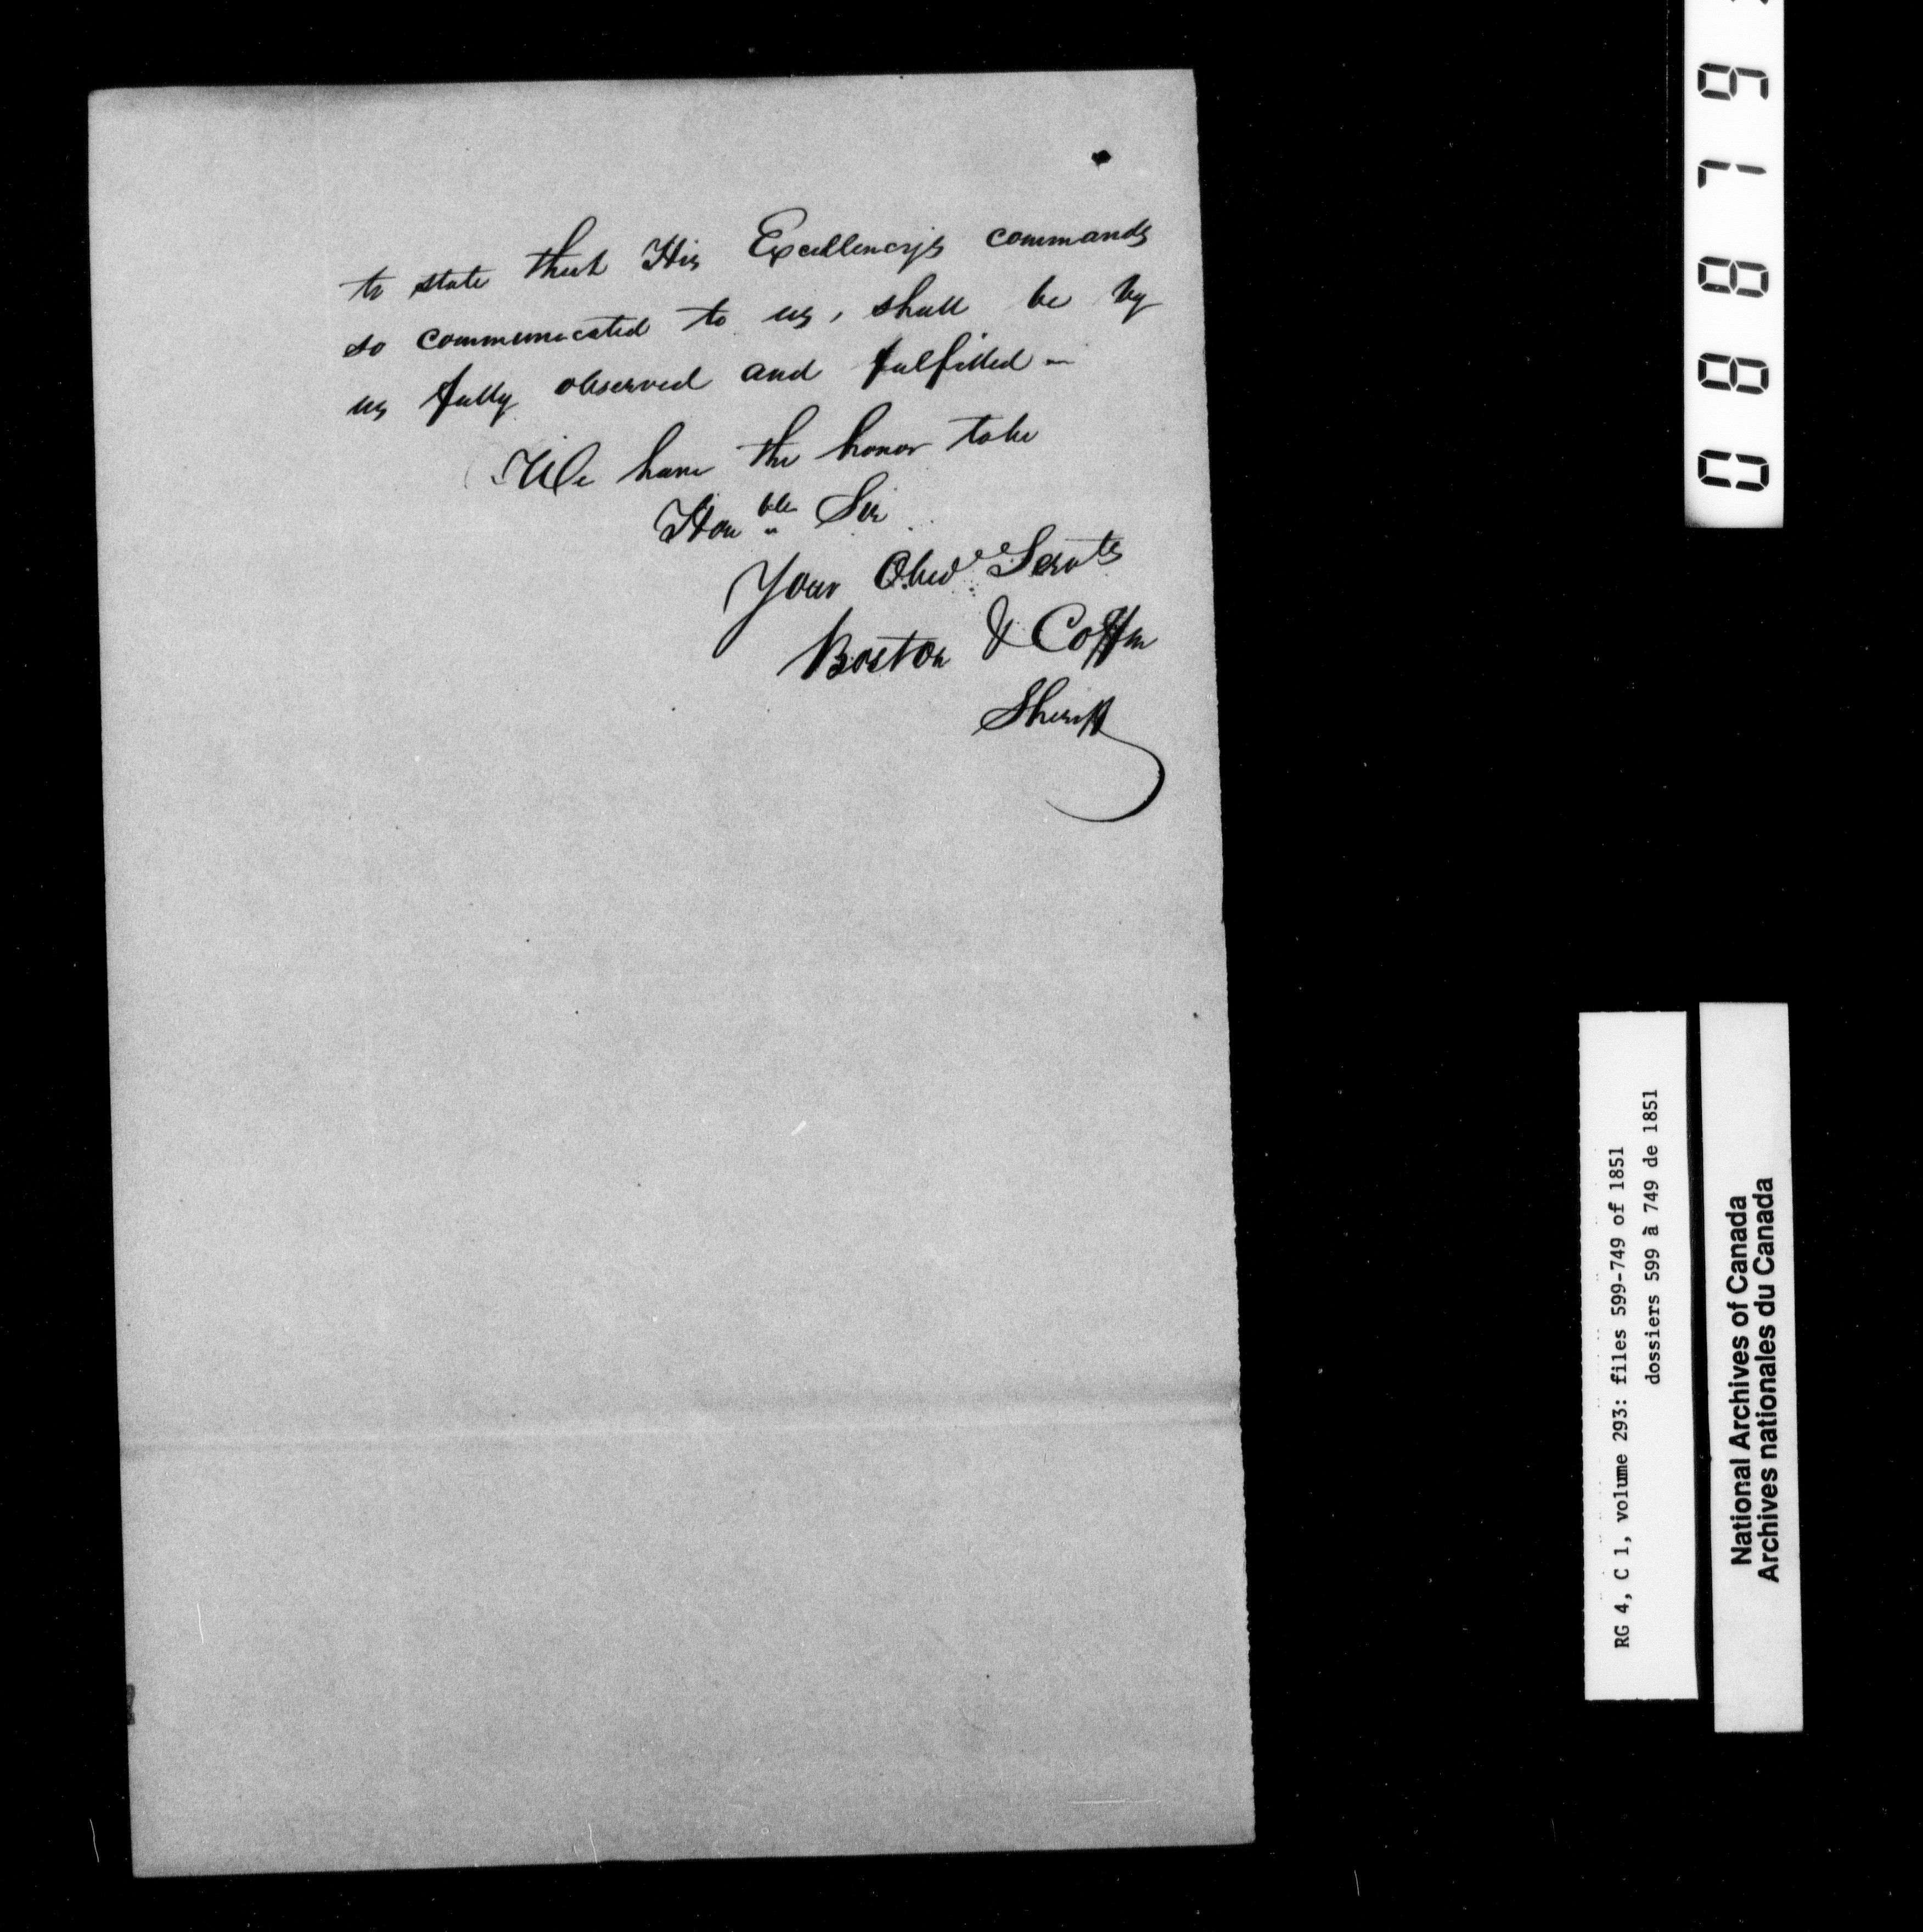 to state that His Excellency's commands
so communicated to us, shall be by
us fully observed and fulfilled —
We have the honor to be
Hon ble Sir
Your Obed Servts
Boston & Coffin
Sheriff
08879
RG 4, C 1, volume 293: files 599-749 of 1851
dossiers 599 à 749 de 1851
National Archives of Canada
Archives nationales du Canada